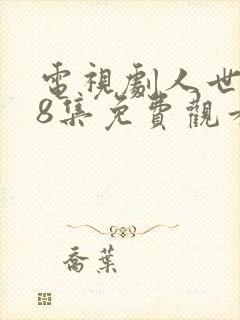 電視劇人世
8集免費觀看
喬葉